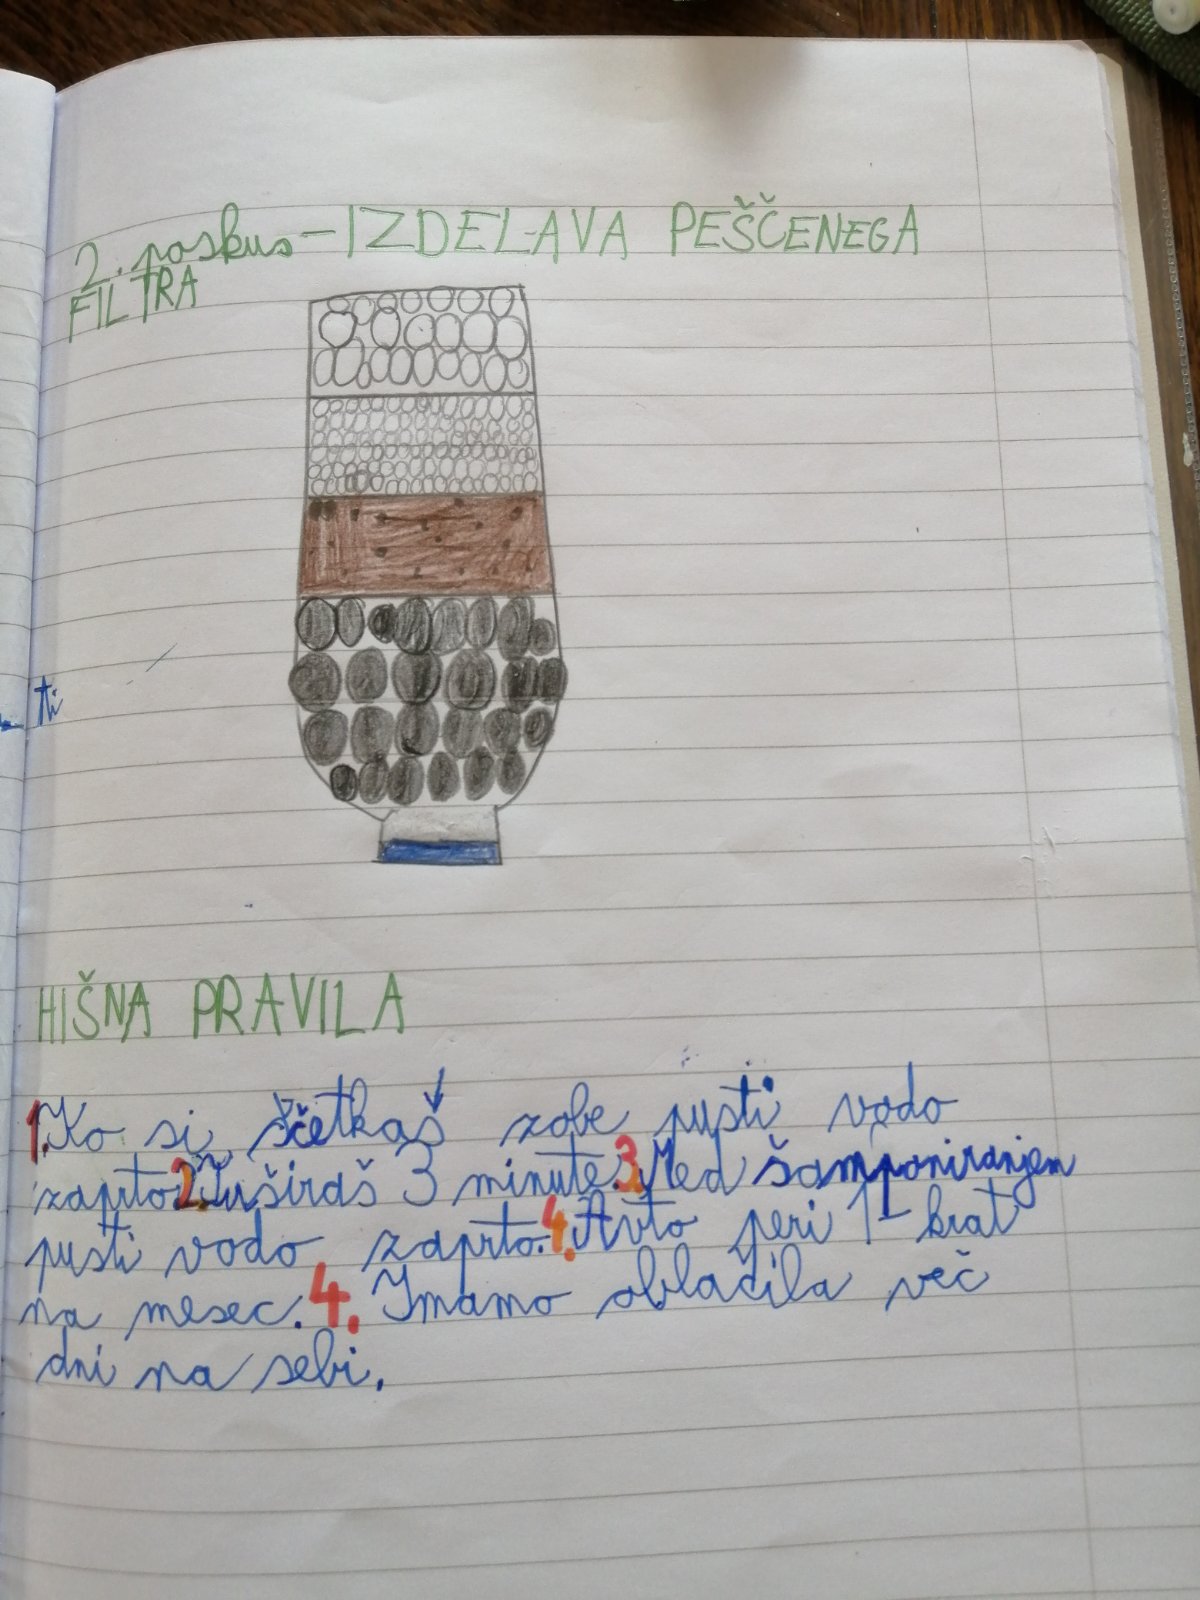 2. poskus - IZDELAVA PEŠČENEGA
FILTRA
ti
HIŠNA PRAVILA
1. Ko si ščetkaš zobe pusti vodo
zaprto. 2. Tuširaš 3 minute. 3. Med šamponiranjem
pusti vodo zaprto. 4. Avto peri 1-krat
na mesec. 4. Imamo oblačila več
dni na sebi.